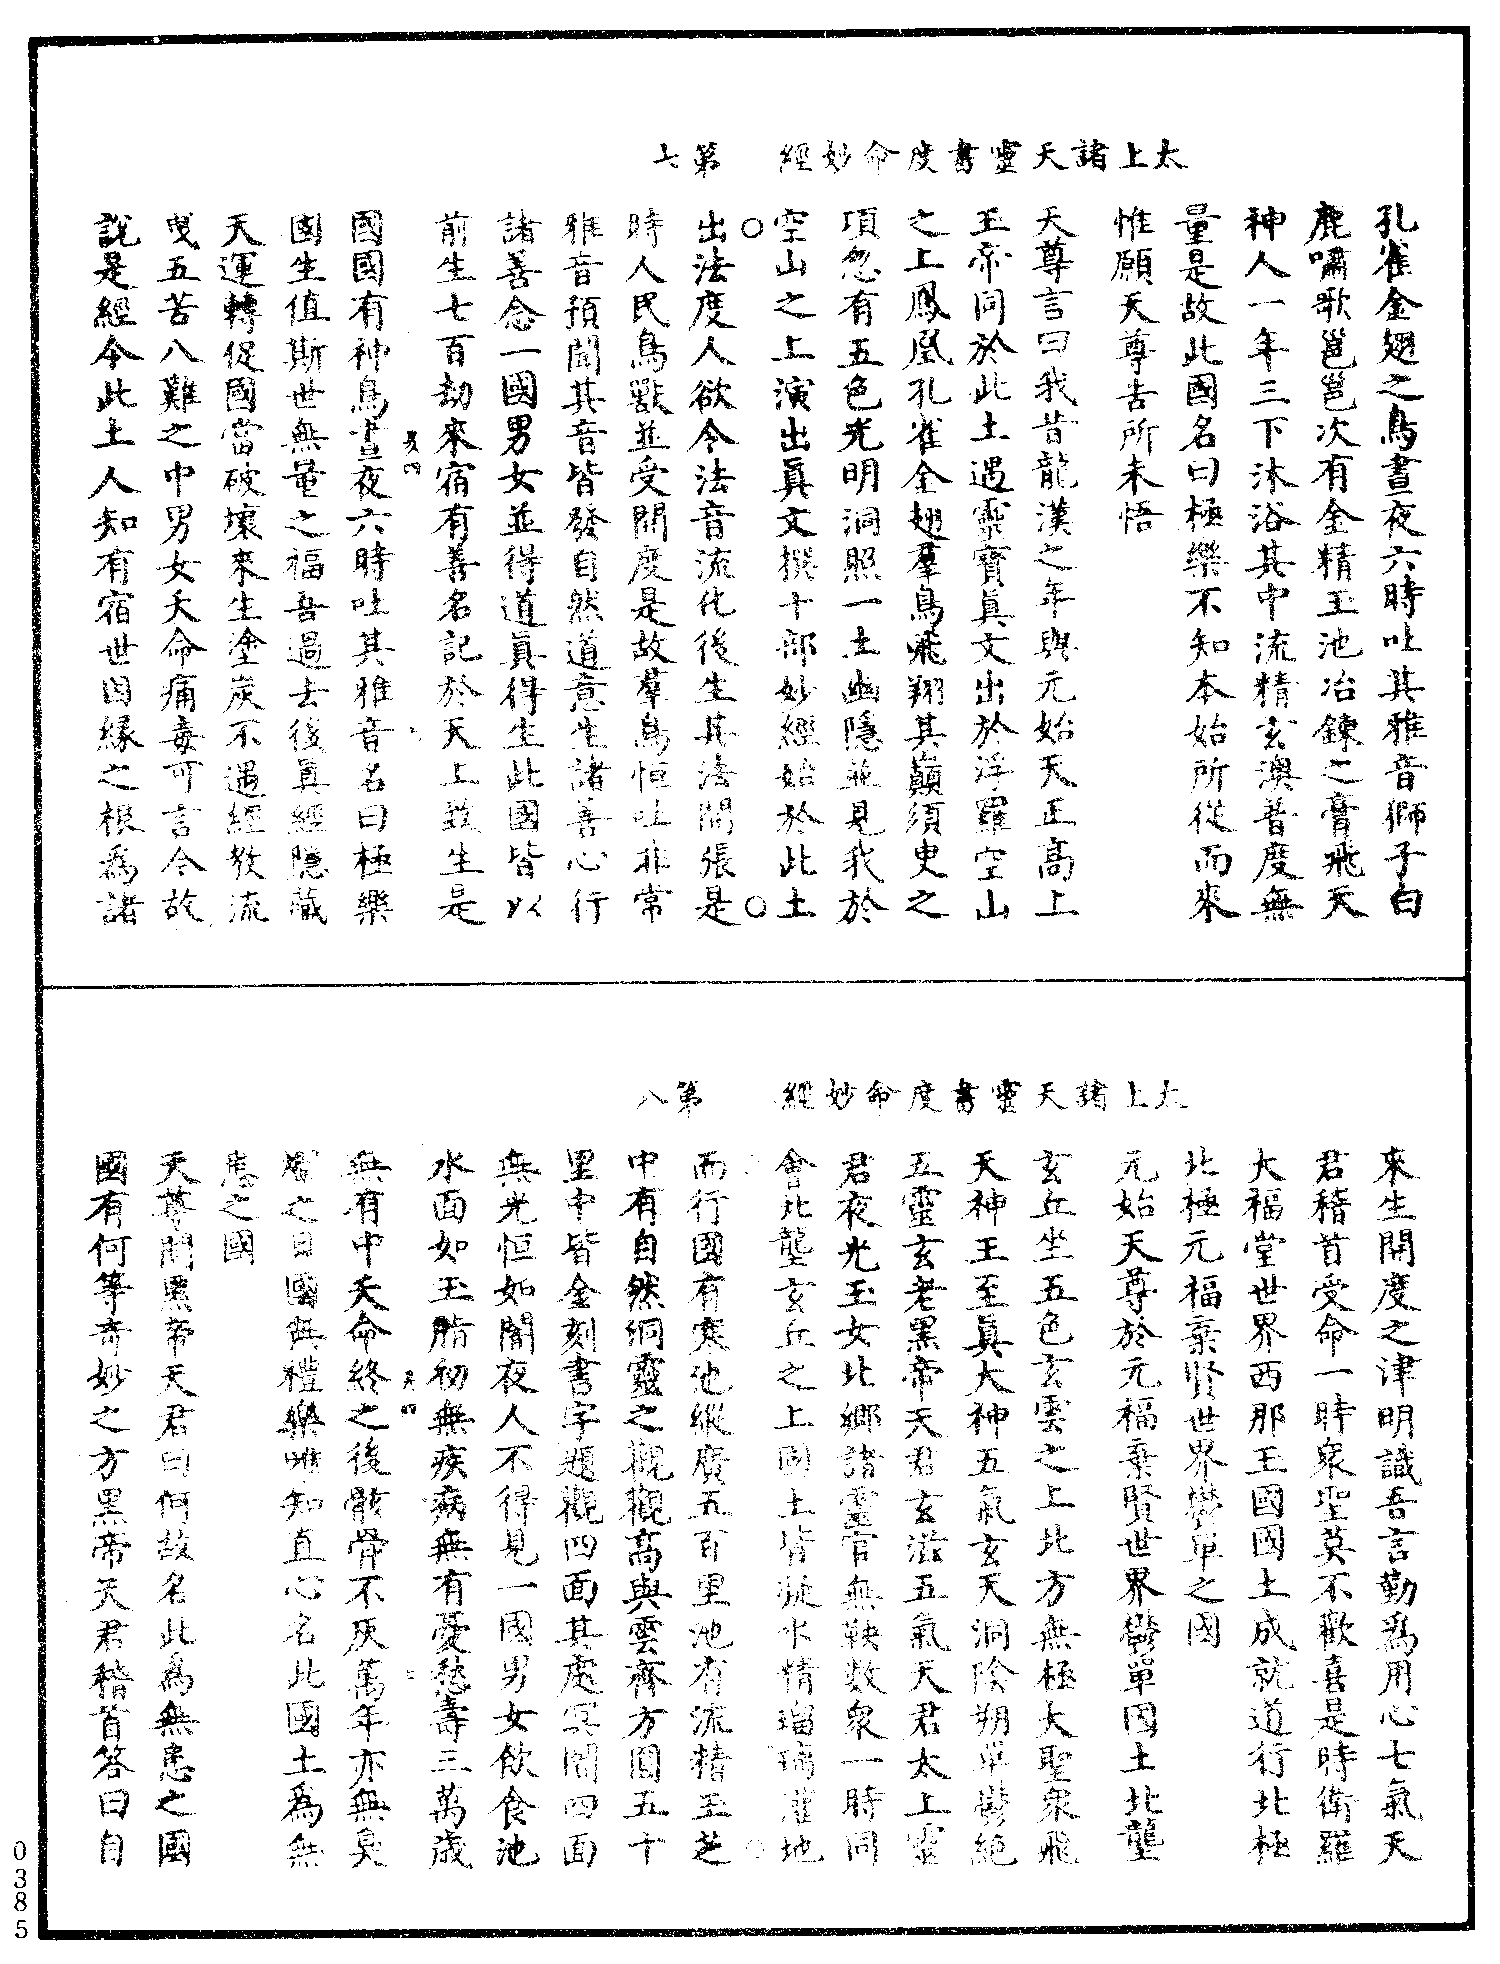 太上諸天靈書度命妙經　第七
孔雀金翅之鳥晝夜六時吐其雅音獅子白
鹿嘯歌邕邕次有金精玉池冶鍊之膏飛天
神人一年三下沐浴其中流精玄澳普度無
量是故此國名曰極樂不知本始所從而來
惟願天尊告所未悟
天尊言曰我昔龍漢之年與元始天王高上
玉帝同於此土遇靈寶真文出於浮羅空山
之上鳳凰孔雀金翅羣鳥飛翔其巔須臾之
項忽有五色光明洞照一土幽隱並見我於
空山之上演出真文撰十部妙經始於此土
出法度人欲令法音流化後生其法開張是
時人民鳥獸並受開度是故羣鳥恒吐非常
雅音預聞其音皆發自然道意生諸善心行
諸善念一國男女並得道真得生此國皆以
前生七百劫來宿有善名記於天上致生是
國國有神鳥晝夜六時吐其雅音名曰極樂
國生值斯世無量之福吾過去後真經隱藏
天運轉促國當破壞來生塗炭不遇經教流
曳五苦八難之中男女夭命痛毒可言今故
說是經令此土人知有宿世因緣之根為諸
太上諸天靈書度命妙經　第八
來生開度之津明識吾言勤為用心七氣天
君稽首受命一時眾聖莫不歡喜是時衛羅
大福堂世界西那玉國國土成就道行北極
北極元福棄賢世界鬱單之國
元始天尊於元福棄賢世界鬱單國土北壟
玄丘坐五色玄雲之上北方無極大聖眾飛
天神王至真大神五氣玄天洞陰朔單鬱絕
五靈玄老黑帝天君玄滋五氣天君太上靈
君夜光玉女北鄉諸靈官無鞅數眾一時同
會北壟玄丘之上國土皆凝水精瑠璃灌地
而行國有寒池縱廣五百里池有流精玉芝
中有自然洞靈之觀觀高與雲齊方圓五十
里中皆金刻書字題觀四面其處冥闇四面
無光恒如闇夜人不得見一國男女飲食池
水面如玉脂初無疾病無有憂愁壽三萬歲
無有中夭命終之後骸骨不灰萬年亦無臭
爛之日國無禮樂唯知直心名此國土為無
恚之國
天尊問黑帝天君曰何故名此為無恚之國
國有何等奇妙之方黑帝天君稽首答曰自
0385